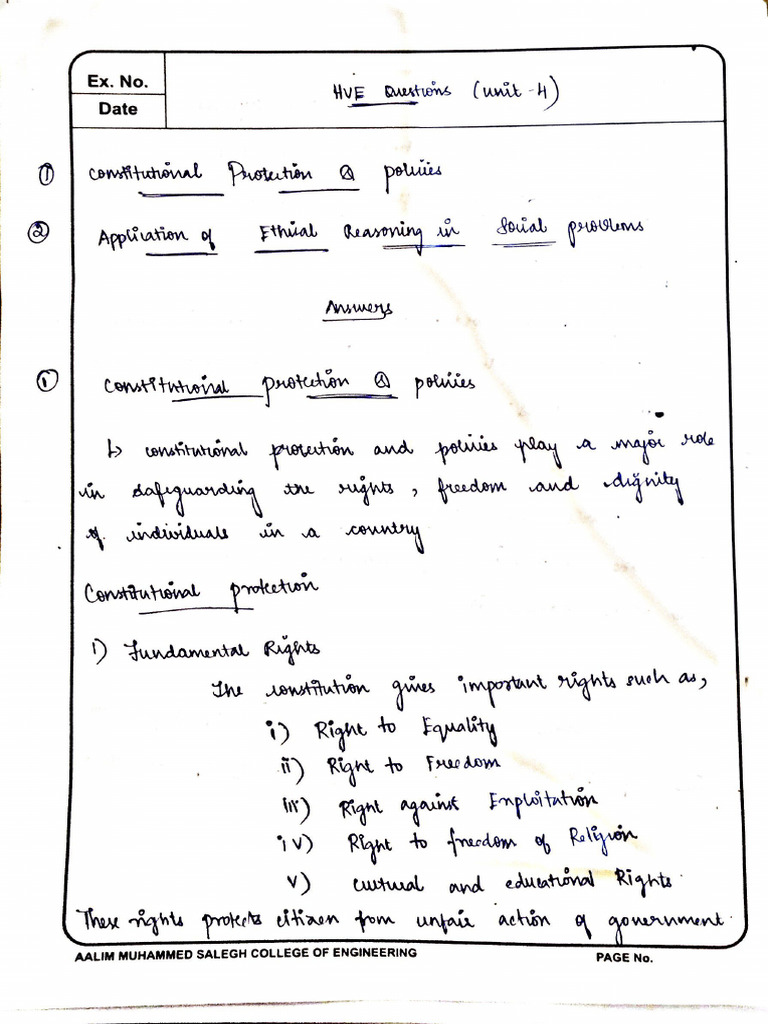 Ex. No.
HVE Questions (Unit - 4)
Date
① Constitutional Protection & policies
② Application of Ethical Reasoning in Social problems
Answers
① Constitutional protection & policies
↳ constitutional protection and policies play a major role
in safeguarding the rights, freedom and dignity
of individuals in a country
Constitutional protection
1) Fundamental Rights
The constitution gives important rights such as,
i) Right to Equality
ii) Right to Freedom
iii) Right against Exploitation
iv) Right to freedom of Religion
v) cultural and educational Rights
These rights protects citizen from unfair action of government.
AALIM MUHAMMED SALEGH COLLEGE OF ENGINEERING
PAGE No.